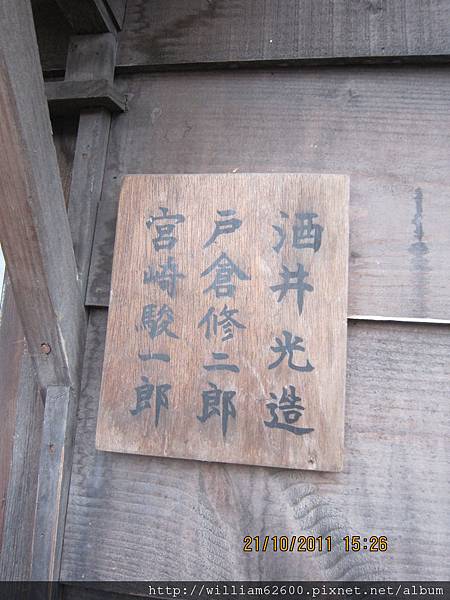 酒井光造
戸倉修二郎
宮崎駿一郎
21/10/2011 15:26
http://william62600.pixnet.net/album